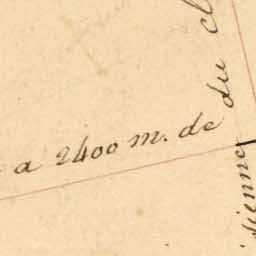 a 2400 m. de
du cl
sienne